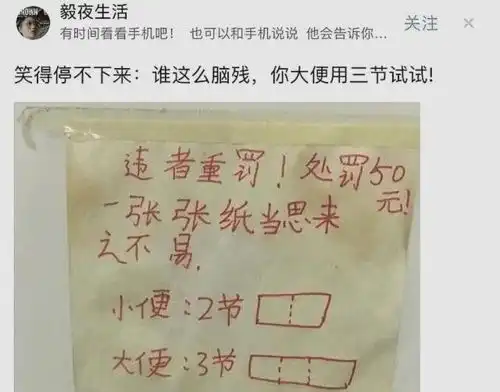 毅夜生活
关注
有时间看看手机吧！ 也可以和手机说说 他会告诉你...
笑得停不下来：谁这么脑残，你大便用三节试试!
违者重罚！处罚50
元!
一张张纸当思来
之不易.
小便：2节
大便：3节